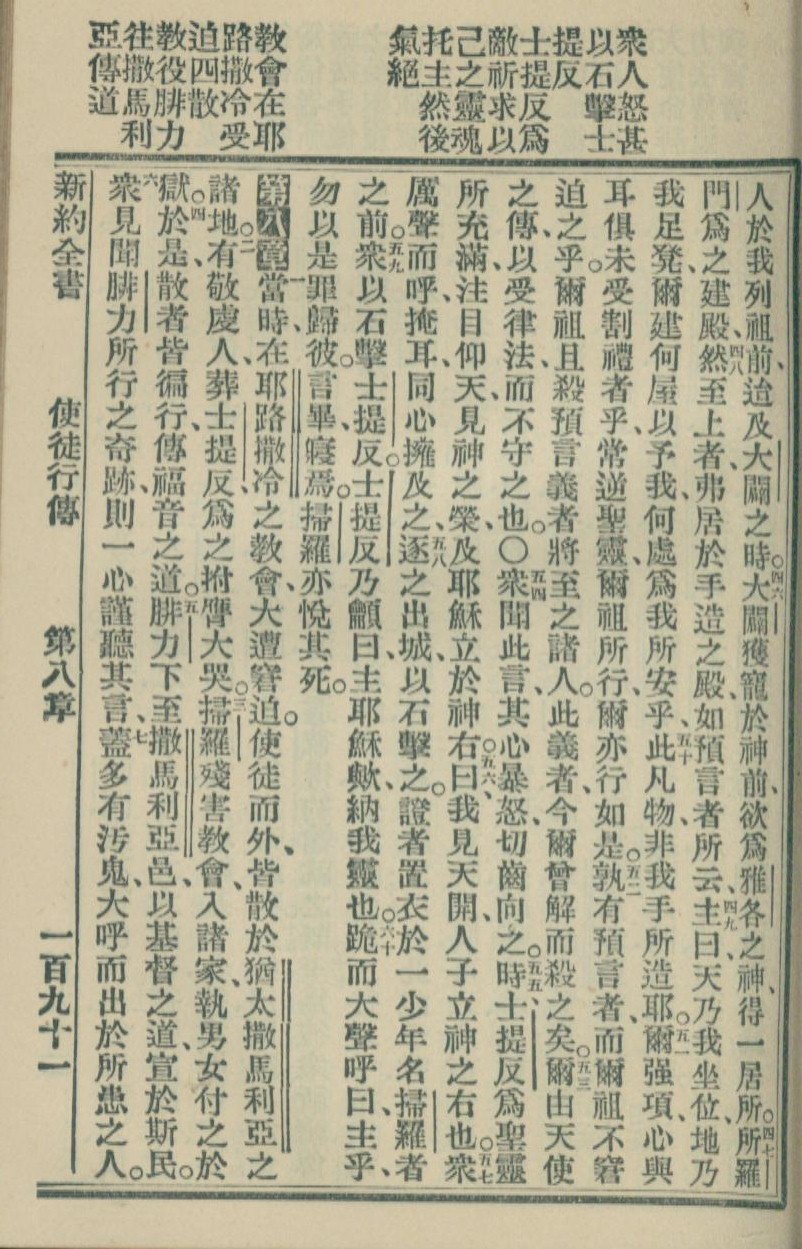 衆人怒甚
以石擊士
提反
士提反爲
敵祈求以
己之靈魂
托主然後
氣絕
教會在耶
路撒冷受
迫四散
教役腓力
往撒馬利
亞傳道
人於我列祖前、迨及大闢之時。四六大闢獲寵於神前、欲爲雅各之神、得一居所。四七所羅
門爲之建殿、四八然至上者、弗居於手造之殿、如預言者所云、四九主曰、天乃我坐位、地乃
我足凳、爾建何屋以予我、何處爲我所安乎、五十此凡物、非我手所造耶。五一爾强項、心與
耳俱未受割禮者乎、常逆聖靈、爾祖所行、爾亦行如是。五二孰有預言者、而爾祖不窘
迫之乎。爾祖且殺預言義者將至之諸人。此義者、今爾曾解而殺之矣。五三爾由天使
之傳、以受律法、而不守之也。○五四衆聞此言、其心暴怒、切齒向之。五五時、士提反爲聖靈
所充滿、注目仰天、見神之榮、及耶穌立於神右。五六曰、我見天開、人子立神之右也。五七衆
厲聲而呼、掩耳、同心擁及之、五八逐之出城、以石擊之。證者置衣於一少年名掃羅者
之前。五九衆以石擊士提反。士提反乃龥曰、主耶穌歟、納我靈也。六十跪而大聲呼曰、主乎、
勿以是罪歸彼。言畢、寢焉。掃羅亦悅其死。
第八章一當時、在耶路撒冷之教會、大遭窘迫。使徒而外、皆散於猶太撒馬利亞之
諸地。二有敬虔人、葬士提反、爲之拊膺大哭。三掃羅殘害教會、入諸家、執男女付之於
獄。四於是、散者皆徧行、傳福音之道。五腓力下至撒馬利亞邑、以基督之道、宣於斯民。
六衆見聞腓力所行之奇跡、則一心謹聽其言、七蓋多有汚鬼、大呼而出於所患之人。
新約全書　使徒行傳　第八章　一百九十一